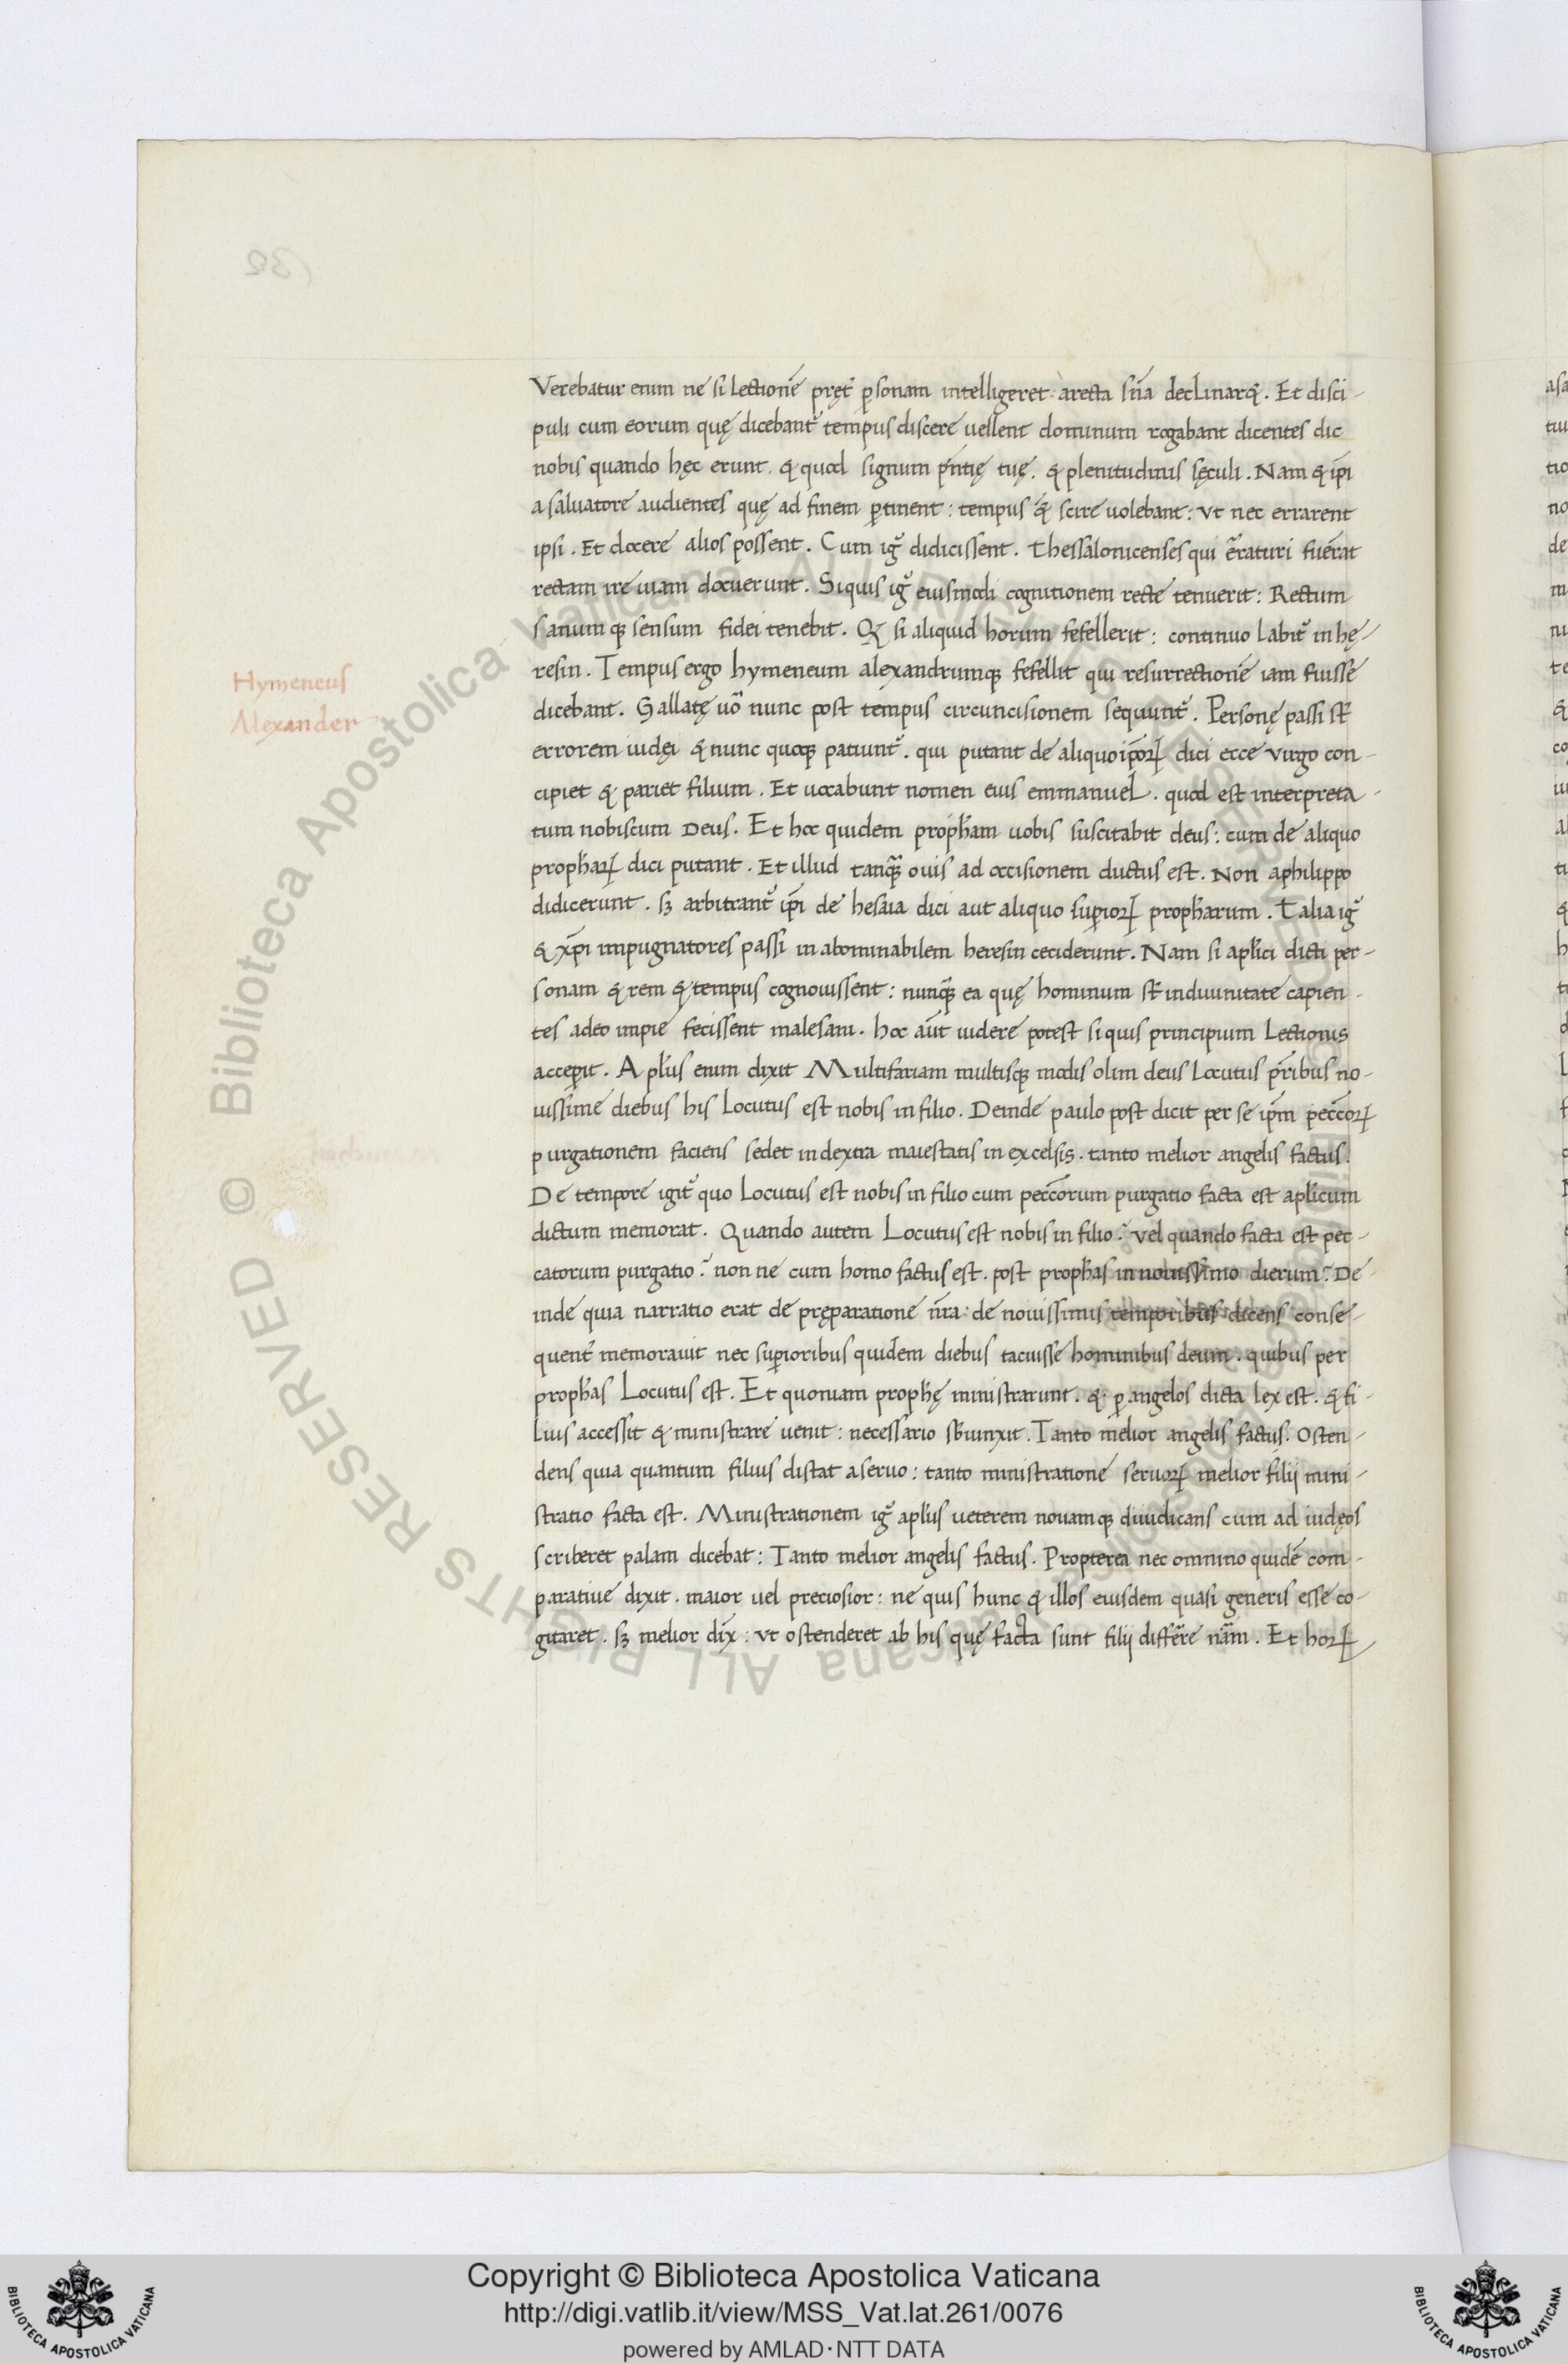 Hymeneus
Alexander
Verebatur enim ne si lectionē pręt̉ p̲sonam intelligeret: a recta sn̄a declinarꝫ. Et disci-
puli cum eorum quę dicebant᷑ tempus discere uellent dominum rogabant dicentes dic
nobis quando hęc erunt. & quod signum p̄ntię tuę. & plenitudinis sęculi. Nam & ip̄i
a saluatore audientes quę ad finem p̲tinent: tempus q̄ꝫ scire uolebant: Vt nec errarent
ipsi. Et docere alios possent. Cum ig᷑ didicissent. Thessalonicenses qui er̄raturi fuerāt
rectam ire uiam docuerunt. Siquis ig᷑ eiusmodi cognitionem recte tenuerit: Rectum
sanumqꝫ sensum fidei tenebit. Qꝫ si aliquid horum fefellerit: continuo labit᷑ in hę-
resin. Tempus ergo hymeneum alexandrumqꝫ fefellit qui resurrectionē iam fuisse
dicebant. Gallatę uō nunc post tempus circuncisionem sequunt᷑. Personę passi st̄
errorem iudęi & nunc quoqꝫ patiunt᷑. qui putant de aliquo ip̄oꝝ dici ecce virgo con-
cipiet & pariet filium. Et uocabunt nomen eius emmanuel. quod est interpreta-
tum nobiscum Deus. Et hoc quidem prop̄ham uobis suscitabit deus: cum de aliquo
prop̄haꝝ dici putant. Et illud tanq̄ꝫ ouis ad occisionem ductus est. Non a philippo
didicerunt. sꝫ arbitrant᷑ ip̄i de hesaia dici aut aliquo sup̲ioꝝ prop̄harum. Talia ig᷑
& xp̄i impugnatores passi in abominabilem heresin ceciderunt. Nam si ap̄lici dicti per-
sonam & rem & tempus cognouissent: nunq̄ꝫ ea quę hominum st̄ in diuinitate capien-
tes adeo impie fecissent malesani. hoc aūt uidere potest siquis principium Lectionis
accep̲it. Ap̄lus enim dixit Multifariam multisqꝫ modis olim deus Locutus p̄ribus no-
uissime diebus his Locutus est nobis in filio. Deinde paulo post dicit per se ip̄m pecc̄oꝝ
purgationem faciens sedet in dextra maiestatis in excelsis. tanto melior angelis factus.
De tempore igit᷑ quo Locutus est nobis in filio cum pecc̄orum purgatio facta est ap̄licum
dictum memorat. Quando autem Locutus est nobis in filio? vel quando facta est pec-
catorum purgatio? non ne cum homo factus est. post prop̄has in nouissimo dierum? De-
inde quia narratio erat de pręparatione nr̄a: de nouissimis temporibus dicens conse-
quent̉ memorauit nec sup̲ioribus quidem diebus tacuisse hominibus deum. quibus per
prop̄has Locutus est. Et quoniam prop̄hę ministrarunt. &. p̲ angelos dicta lex est. & fi-
lius accessit & ministrare uenit: necessario sb̄iunxit. Tanto melior angelis factus. Osten-
dens quia quantum filius distat a seruo: tanto ministratione seruoꝝ melior filij mini-
stratio facta est. Ministrationem ig᷑ ap̄lus ueterem nouamqꝫ diiudicans cum ad iudęos
scriberet palam dicebat: Tanto melior angelis factus. Propterea nec omnino quidē com-
paratiue dixit. maior uel preciosior: ne quis hunc & illos eiusdem quasi generis esse co-
gitaret. sꝫ melior dix̄: vt ostenderet ab his quę facta sunt filij differ̄e nām. Et hoꝝ
© Biblioteca Apostolica Vaticana ALL RIGHTS RESERVED
Copyright © Biblioteca Apostolica Vaticana
http://digi.vatlib.it/view/MSS_Vat.lat.261/0076
powered by AMLAD·NTT DATA
BIBLIOTECA APOSTOLICA VATICANA
BIBLIOTECA APOSTOLICA VATICANA